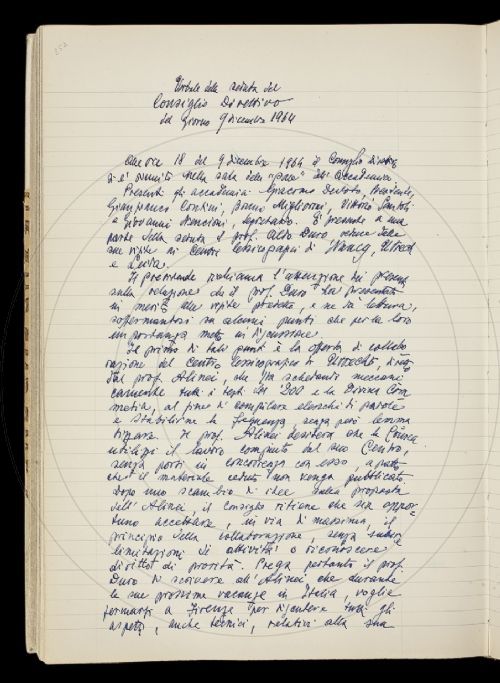 Verbale della seduta del
Consiglio Direttivo
del giorno 9 dicembre 1964
Alle ore 18 del 9 dicembre 1964 il Consiglio Direttivo
si è riunito nella sala delle "pale" dell'Accademia.
Presenti gli accademici Giacomo Devoto, Presidente,
Gianfranco Contini, Bruno Migliorini, Vittorio Santoli
e Giovanni Nencioni, segretario. È presente a una
parte della seduta il prof. Aldo Duro reduce dalle
sue visite ai Centri lessicografici di Nancy, Utrecht
e Lovia.
Il Presidente richiama l'attenzione dei presenti
sulla relazione che il prof. Duro ha presentato
in merito alle visite predette, e ne dà lettura,
soffermandosi su alcuni punti che per la loro
importanza mette in discussione.
Il primo di tali punti è la offerta di collabo
razione del Centro lessicografico di Utrecht, diretto
dal prof. Alinei, che sta schedando meccani
camente tutti i testi del 200 e la Divina Com
media, al fine di compilare elenchi di parole
e stabilirne la frequenza, senza però lemma
tizzare. Il prof. Alinei desidera che la Crusca
utilizzi il lavoro compiuto dal suo Centro,
senza porsi in concorrenza con esso, a patto
che il materiale ceduto non venga pubblicato.
Dopo uno scambio di idee sulla proposta
dell'Alinei, il consiglio ritiene che sia oppor
tuno accettare, in via di massima, il
principio della collaborazione, senza subire
limitazioni di attività o riconoscere
diritti di priorità. Prega pertanto il prof.
Duro di scrivere all'Alinei, che durante
le sue prossime vacanze in Italia, voglia
fermarsi a Firenze per discutere tutti gli
aspetti, anche tecnici, relativi alla sua